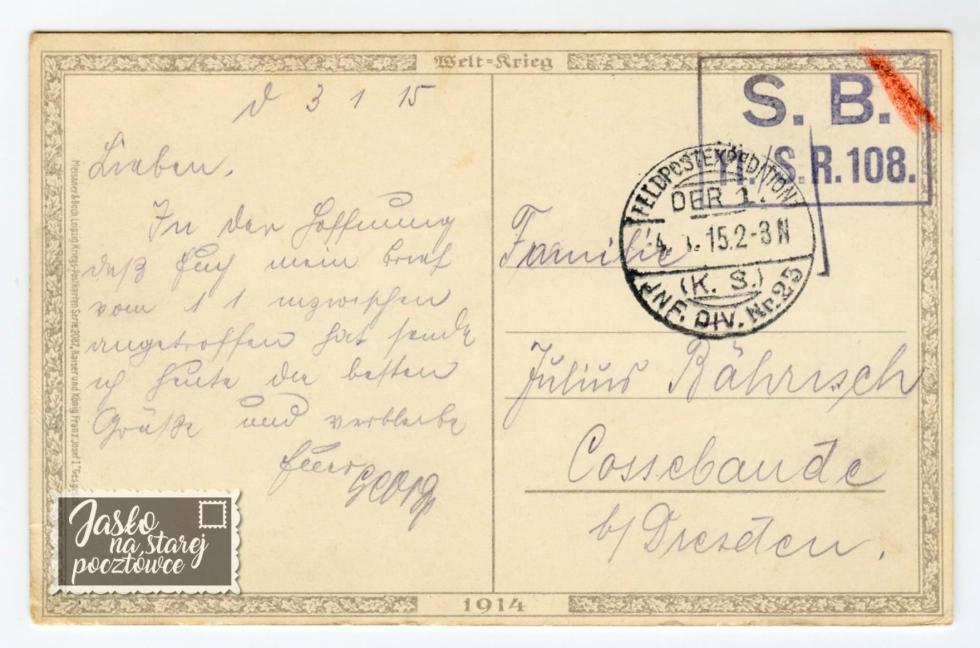 Welt-Krieg
d 3 1 15
Lieben.
In der Hoffnung
daß Euch mein Brief
vom 1 1 inzwischen
angetroffen hat sende
ich heute die besten
Grüße und verbleibe
Euer Georg
Familie
Julius Bährisch
Cossebaude
b/ Dresden.
S. B.
II./S.R.108.
FELDPOSTEXPEDITION
DER 1.
15.2-3N
(K. S.)
INF. DIV. Nr. 25
Meissner & Buch, Leipzig, Kriegs-Postkarten Serie 2012, Kaiser und König Franz Josef I.
Jasło
na starej
pocztówce
1914